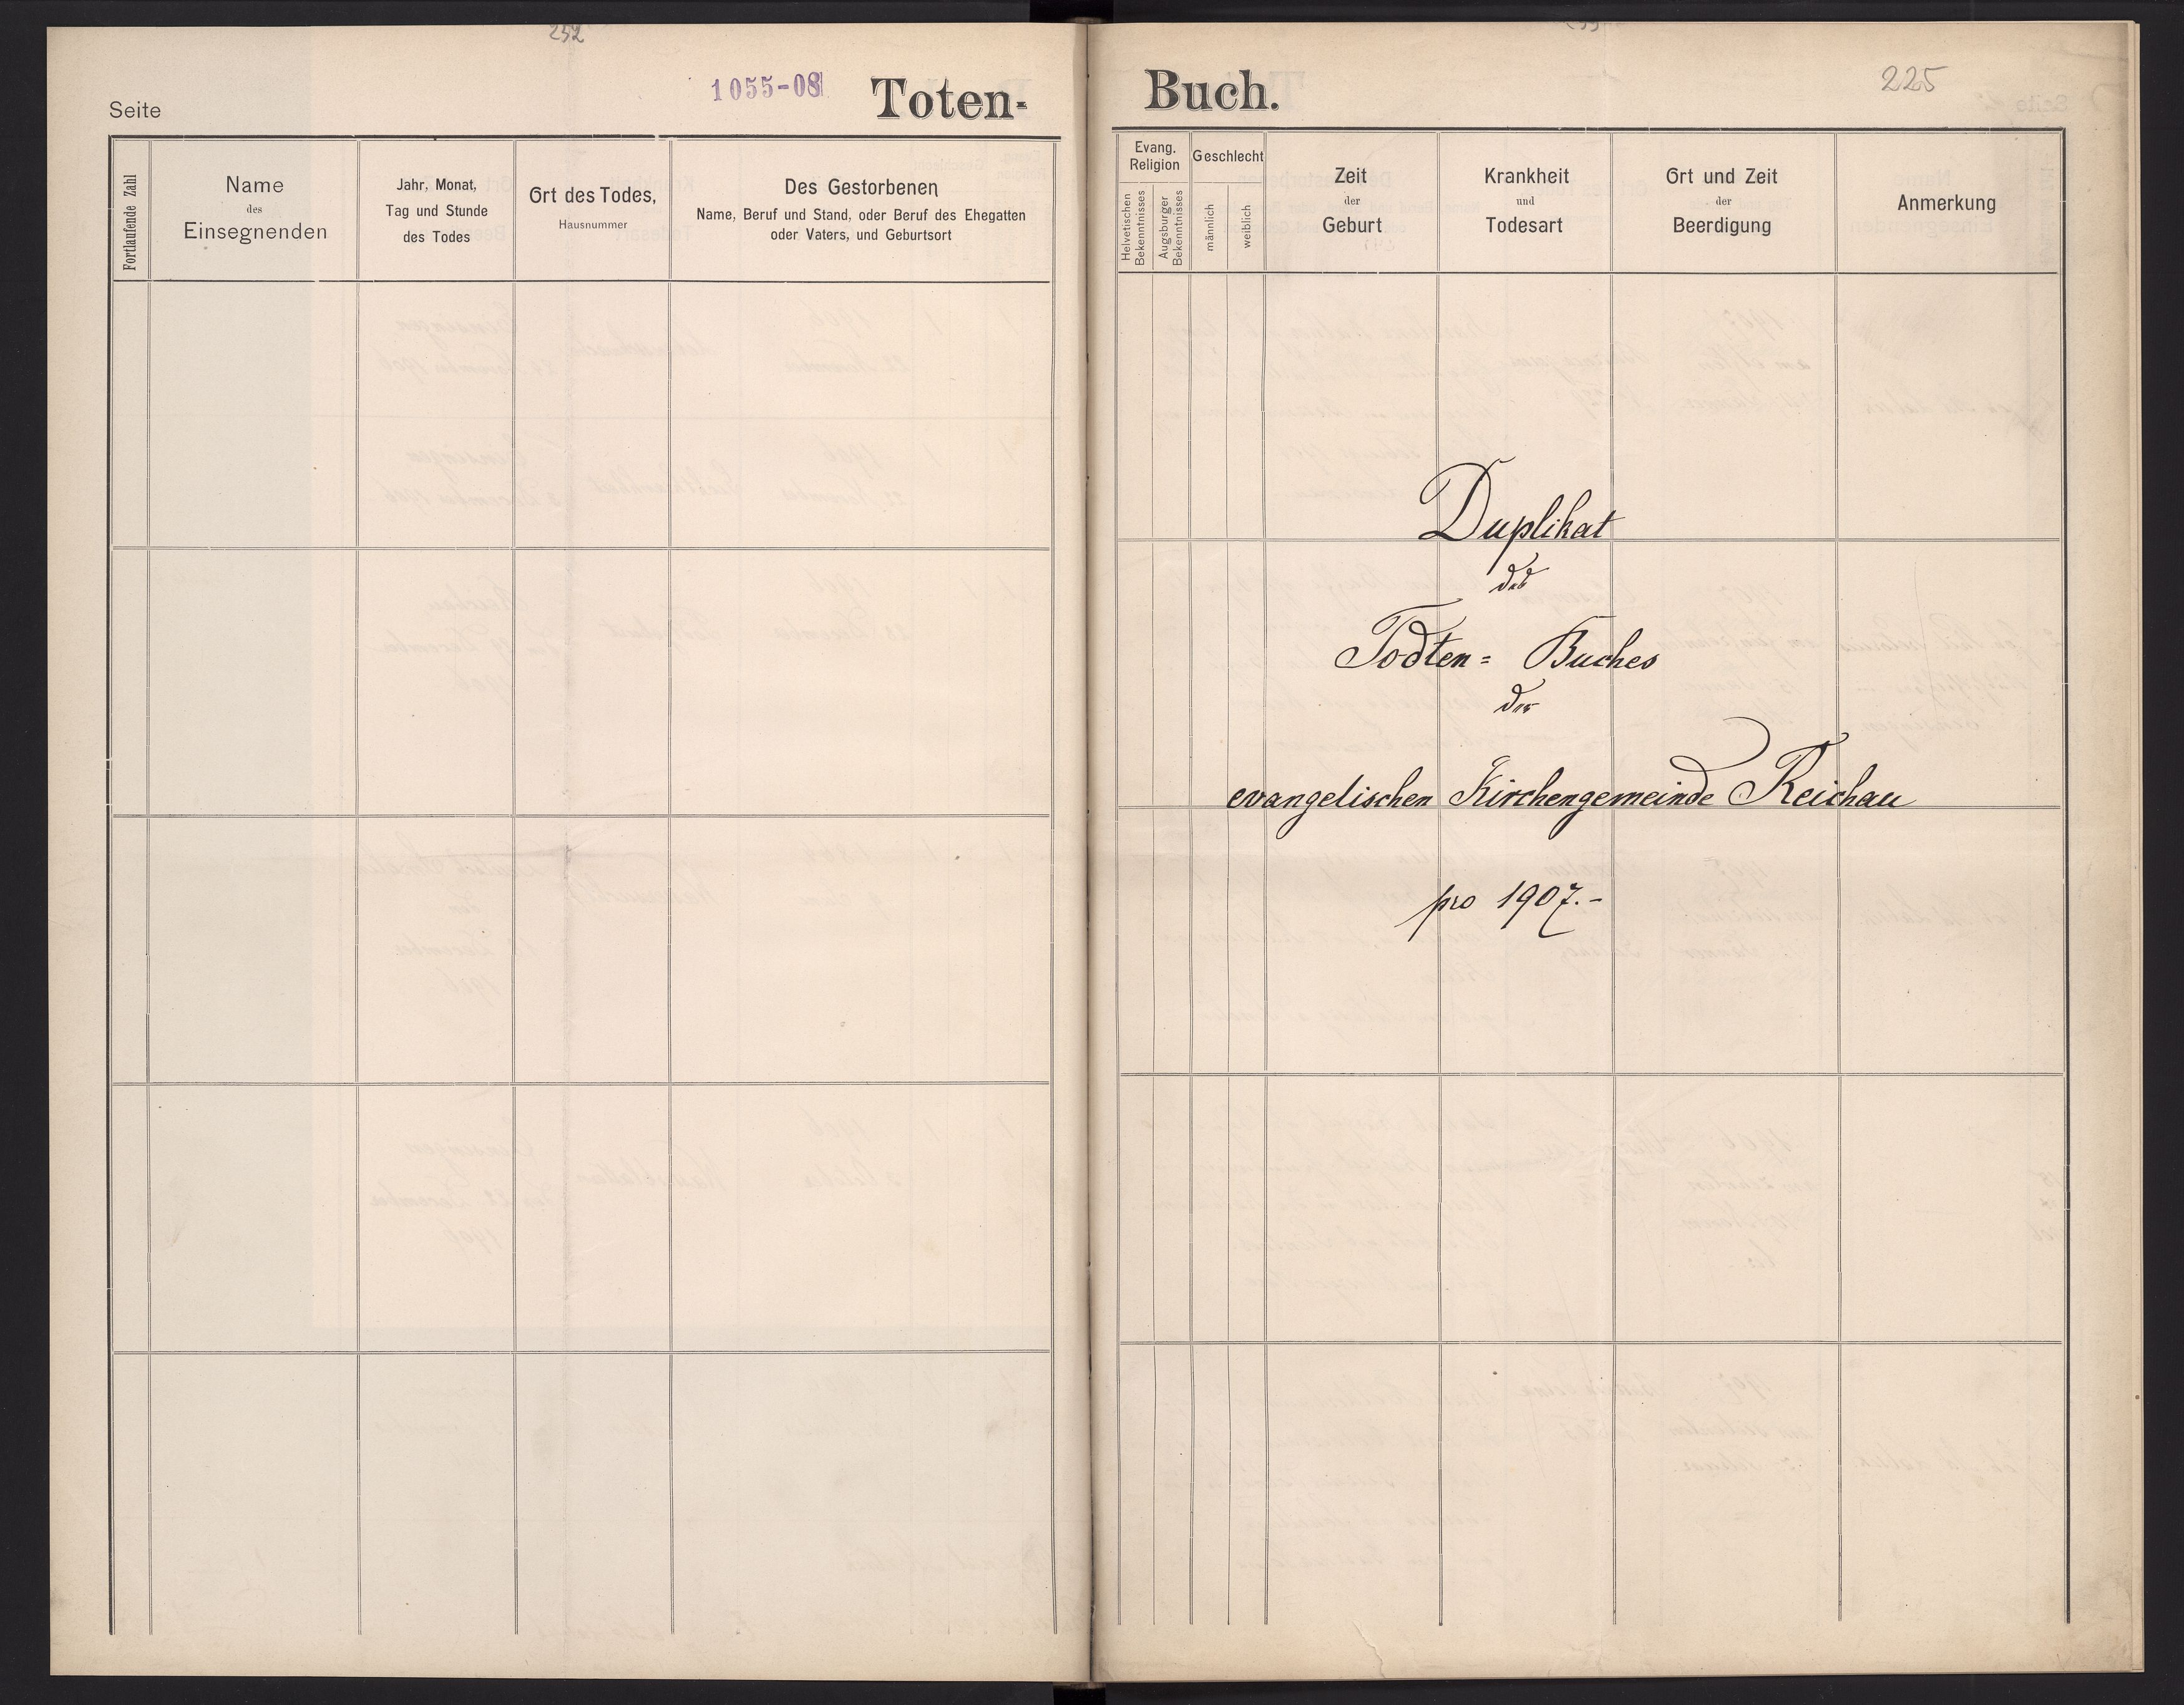 252
1055-08
Seite
Toten-
Fortlaufende Zahl
Name
des
Einsegnenden
Jahr, Monat,
Tag und Stunde
des Todes
Ort des Todes,
Hausnummer
Des Gestorbenen
Name, Beruf und Stand, oder Beruf des Ehegatten
oder Vaters, und Geburtsort
Buch.
225
Evang.
Religion
Helvetischen
Bekenntnisses
Augsburger
Bekenntnisses
Geschlecht
männlich
weiblich
Zeit
der
Geburt
Krankheit
und
Todesart
Ort und Zeit
der
Beerdigung
Anmerkung
Duplikat
des
Todten= Buches
der
evangelischen Kirchengemeinde Reichau
pro 1907.-